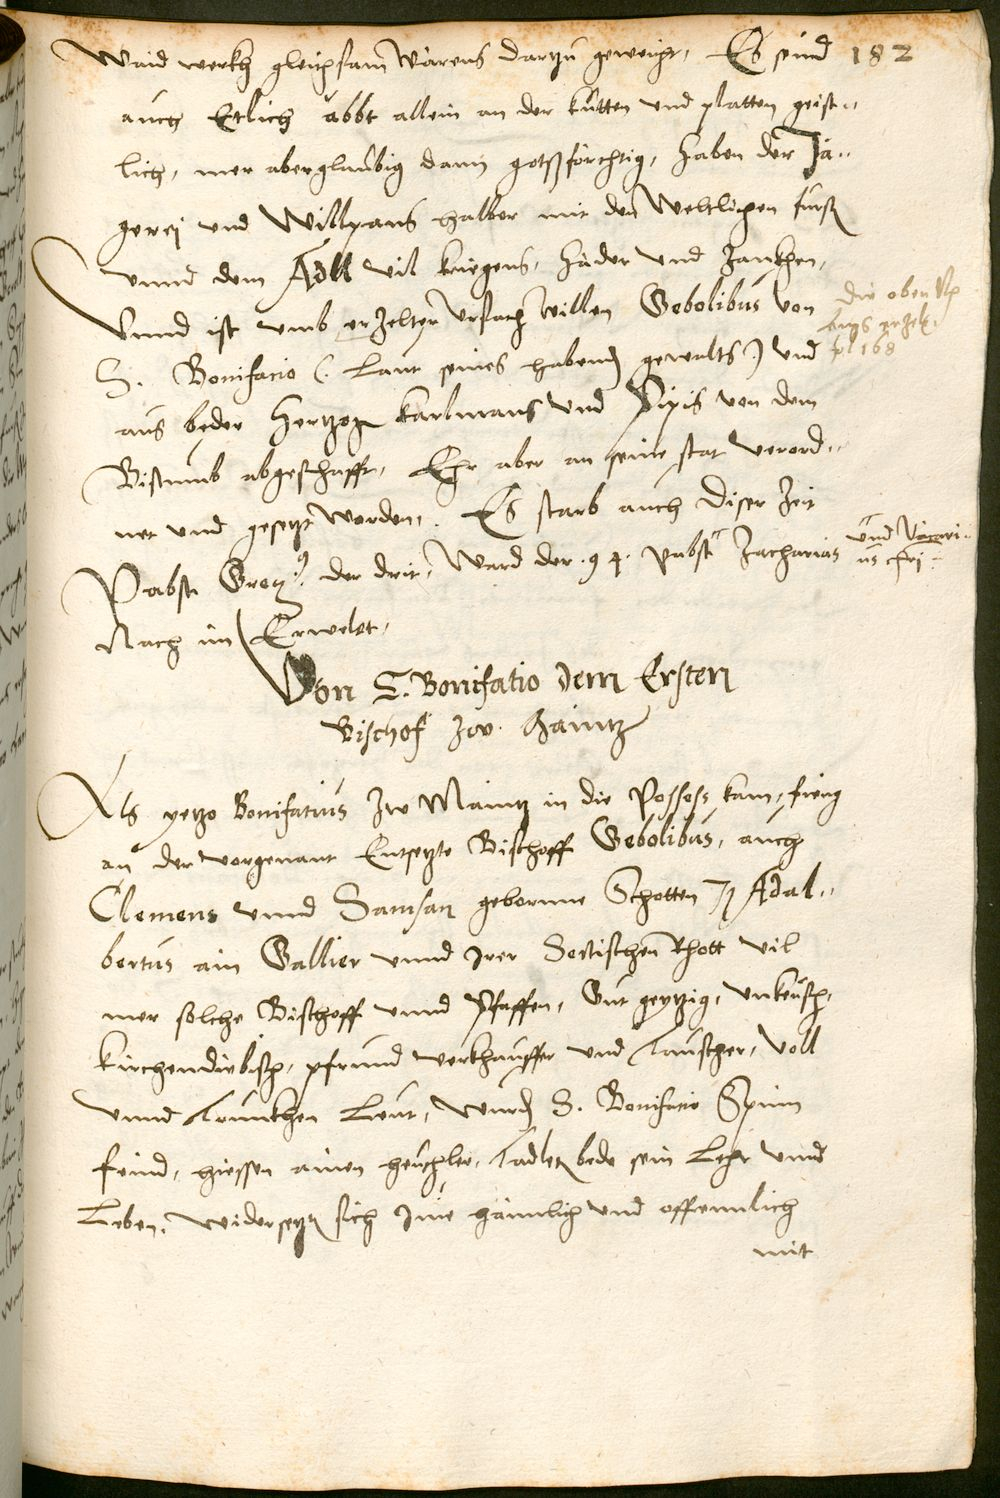 182
Waid werkh gleichsam wärens dartzu geweicht, Es seind
auch Etlich abbt allein an der kutten und platten geist„
lich, mer aberglaubig dann gotßförchtig, haben der Jä„
gerej und Willpans halber mit den Weltlichen
unnd dem Adll vil kriegens, hader und Zankhen,
Unnd ist umb erzelter ursach willen Gebolibus von
S. Bonifacio (: Laut seines habend gewalts:) und
aus beder Hertzog Karlmans und Pipis von dem
Bistumb abgeschafft, Ehr aber an seine stat verord„
net und gesetzt worden. Es starb auch diser Zeit
Pabst Greg: der drit, Ward der .94. Pabst Zacharias
Nach im Erwelet,
die oben
fol 168
und
Von S. Bonifatio dem Ersten
Bischof zw. Maintz
Als yetzo Bonifatius Zw Maintz in die Possess kam, fieng
an der vorgenant Entsetzte Bischoff Gebolibus, auch
Clemens unnd Samsan gebornne Schotten Adal„
bertus ain Gallier unnd irer Sectischen Rhott vil
mer solche Bischoff unnd Pfaffen, Gut geytzig, unkeusch,
kirchendiebisch, pfrund verkhauffer und Tauscher, Voll
unnd Trunkhen Leut, wurd S. Bonifacio Spinn
feind, hiessen ainen heuchler, Tadlet bede sein Lehr unnd
Leben, widersetzt sich Ime haimlich und offennlich
mit